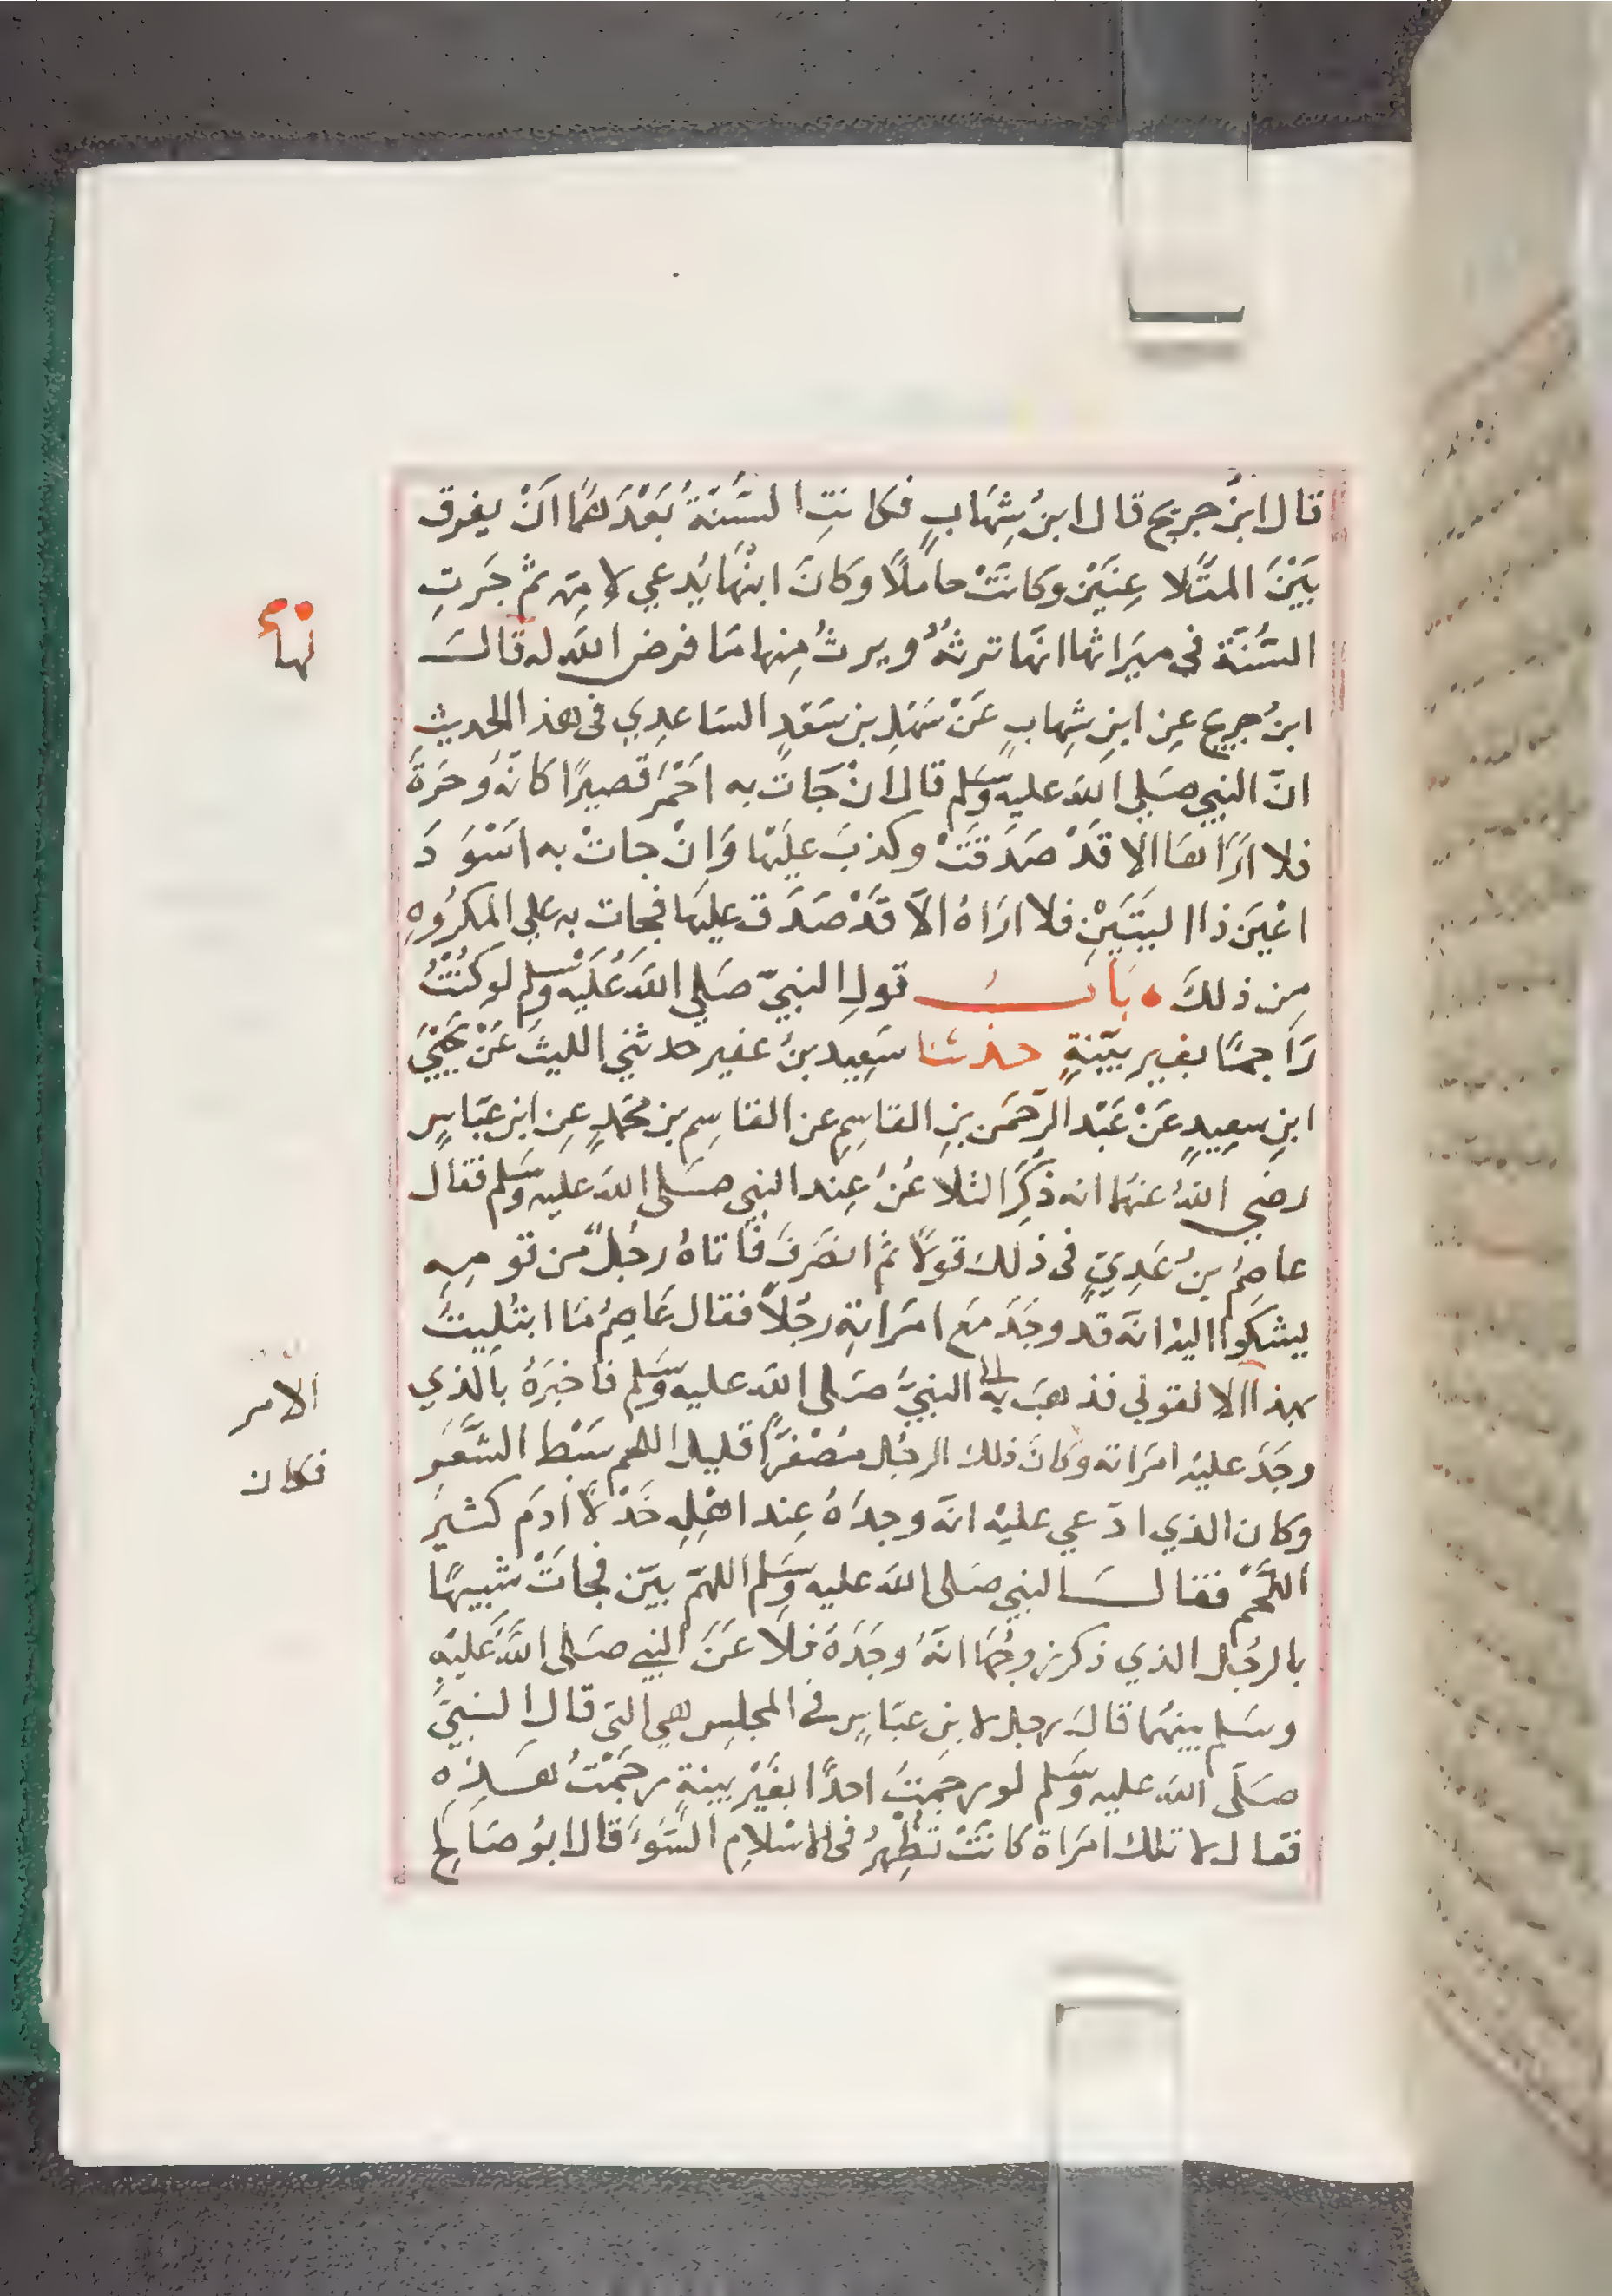 قال ابنُ جريج قال ابنُ شِهَابٍ فكانتِ السُّنةُ بَعْدَهُمَا اَنْ يفرق
بَيْنَ المتَلاعِنَيْن وكانَتْ حاملًا وكَانَ ابنُهَا يُدعي لامِّهِ ثمّ جَرتِ
السُّنَة في ميَراثها انهَا ترثهُ ويرثُ مِنها مَا فرض اللهُ له قالـَ
لها
ابنُ جريج عِن ابنِ شِهابٍ عَنْ سَهْلِ بن سَعْدٍ السَاعدِي في هذا الحديثِ
انّ النبي صَلي الله عليه وسَلم قال ان جَاتْ به احْمَر قصيرًا كانهُ وحَرَةَ
فلا ارَاهَا الا قَدْ صَدَقَتْ وكذبَ عليَها وَانْ جاتْ به اسْوَدَ
اعْيَن ذا اليَتَيْنِ فلا ارَاهُ الّا قَدْ صَدَق عليهَا فجات به علي المكرُوهِ
مِن ذلكَ • بَابـُ قولِ النبيّ صَلي اللهُ عَليْه وسلم لو كنْتُ
رَاجمًا بغير بيّنةٍ حدثنا سَعِيد بنُ عفير حدثني الليثُ عَنْ يَحْيَي
ابنِ سعِيدٍ عَنْ عَبْد الرّحمَن بنِ القاسِم عن القاسِم بن محمَّدٍ عِن ابن عبَاسٍ
رضي اللهُ عنهُما انه ذُكِرَ التلاعُنُ عِند النبي صَلى الله عليه وسَلم فقال
عاصِمُ بنُ عَدِيٍّ في ذلك قولًا ثمّ انصَرفَ فاتاهُ رجُلٌ من قومِهِ
يشكوا اليهْ انه قد وجَدَ مَع امرَاتِهِ رجُلًا فقال عَاصِمُ مَا ابتُلِيتُ
بهذا الا لقولي فذهبَ به الى النبيُّ صَلى الله عليه وسَلم فاخبَرَهُ بالذي
الامر
وجَدَ عليْهِ امرَاته وكانَ ذلك الرجُل مُصْفرًّا قليل اللحم سَبْط الشَّعَرِ
فكان
وكان الذي ادّعي عليْه انه وجدَهُ عِند اهْلِه خَدْلًا آدمَ كثيرَ
اللحْمِ فقالـَ النبي صَلى الله عليه وسَلم اللهمّ بيّن فجاتْ شبيهًا
بالرجُل الذي ذكر زوجُهَا انهُ وجَدَهُ فلاعَنَ النبي صَلى اللهُ عَليْهِ
وسَلم بينهُما قالَ رجل لابنِ عبَاسٍ في المجلِس هي التي قال النبيُّ
صَلّى الله عليه وسَلم لو رجمتُ احدًا بغَيْر بينةٍ رجَمْتُ هَـذِه
فقال لا تلك امرَاة كانَتْ تُظْهِرُ في الاسْلامِ السُّوَءَ قال ابُو صَالِح